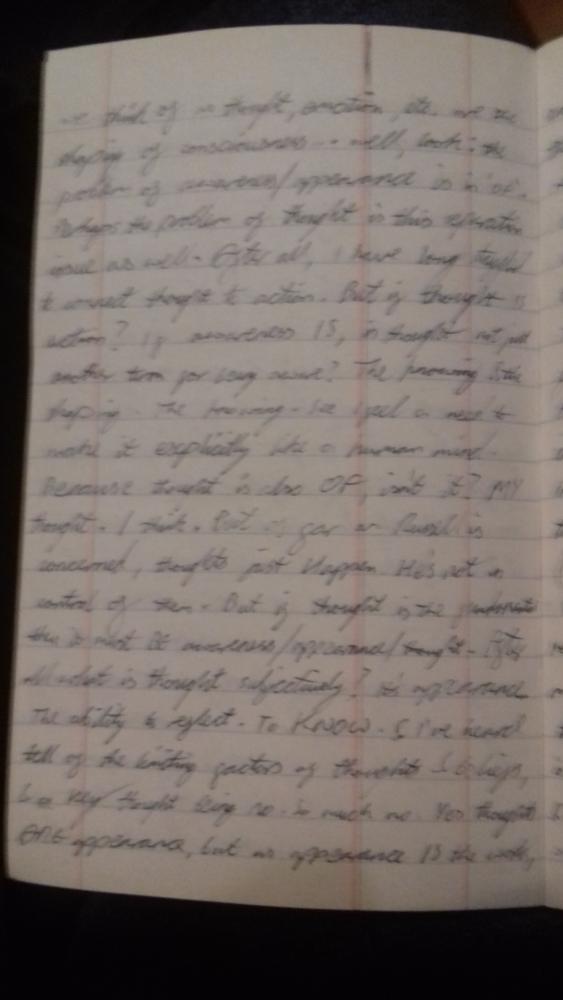 we think of as thought, emotion, etc. are the
shaping of consciousness - well, look: the
problem of awareness/appearance is in 'of'.
Perhaps the problem of thought is this separation
issue as well - After all, I have long
to connect thought to action. But if thought is
action? If awareness IS, is thought not just
another term for being aware? The knowing is the
shaping. The knowing - see I feel a need to
make it explicitly like a human mind.
Because thought is also OF, isn't it? MY
thought. I think. But as far as Russel is
concerned, thoughts just Happen. He's not in
control of them. But if thought is the
this is must BE awareness/appearance/thought - After
all what is thought subjectively? It's appearance
The ability to reflect. To KNOW. & I've heard
tell of the limiting factors of thoughts & beliefs,
thought being no. So much no. Yes thoughts
ARE appearance, but as appearance IS the